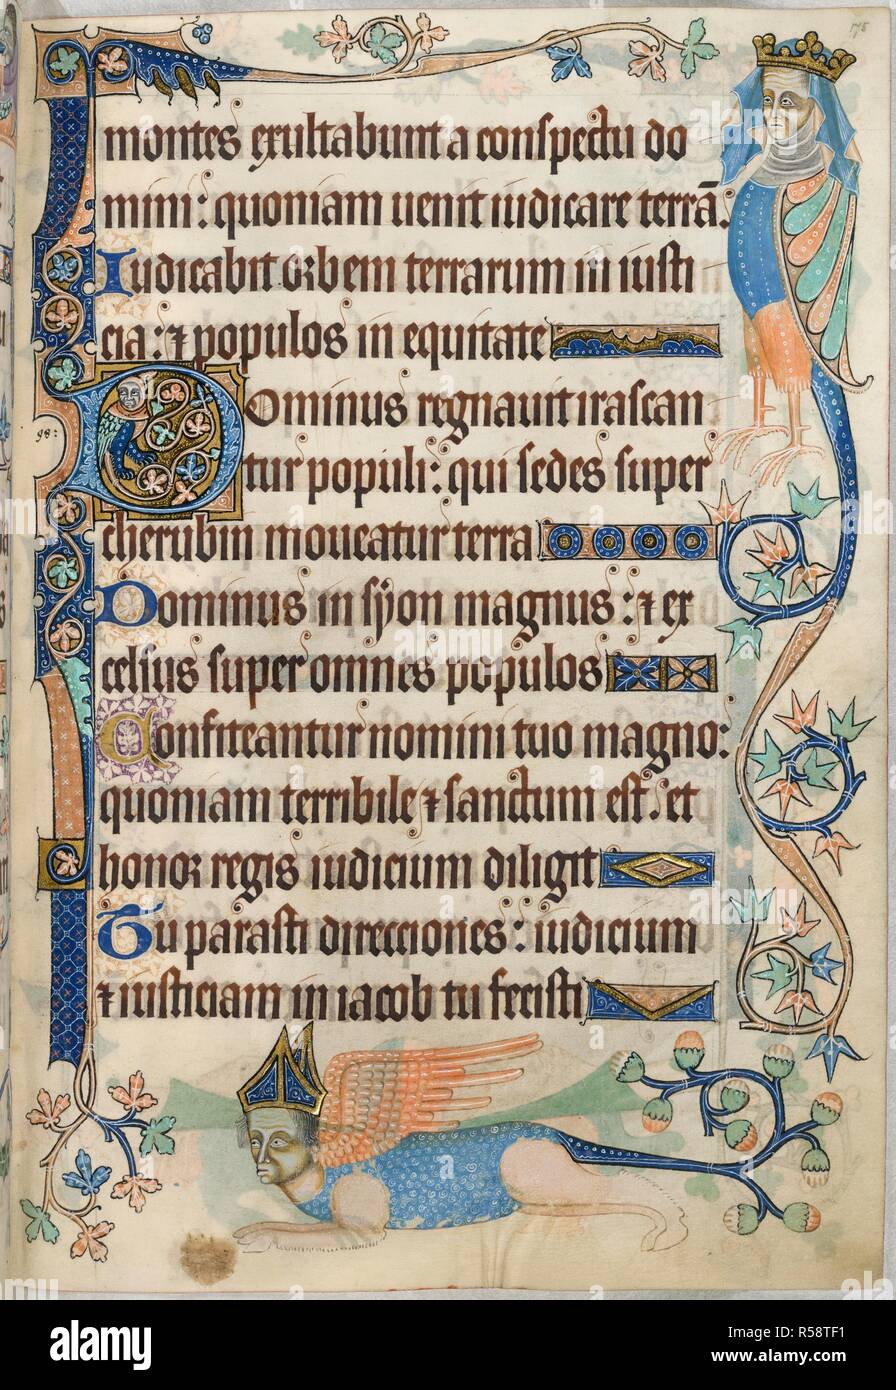 175
montes exultabunt a conspectu do
mini : quoniam uenit iudicare terrā.
Iudicabit orbem terrarum in iusti
cia : ⁊ populos in equitate
Dominus regnauit irascan
98:
tur populi : qui sedes super
cherubin moueatur terra
Dominus in syon magnus : ⁊ ex
celsus super omnes populos
Confiteantur nomini tuo magno :
quoniam terribile ⁊ sanctum est . et
honor regis iudicium diligit
Tu parasti direcciones : iudicium
⁊ iusticiam in iacob tu fecisti
alamy
Image ID: R58TF1
www.alamy.com